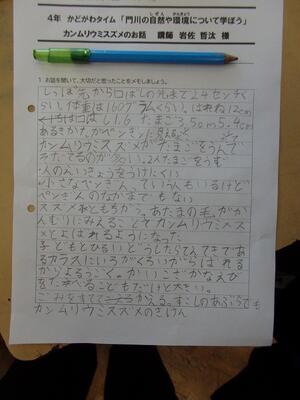 4年 かどがわタイム「門川の自然や環境について学ぼう」
しぜん かんきょう
カンムリウミスズメのお話 講師 岩佐 哲汰 様
1 お話を聞いて、大切だと思ったことをメモしましょう。
しっぽ先から口ばしの先まで24センチく
らい。体重は160グラムくらい。はねね12cm
口ばし1.6 たまご 3.50m 5.4cm
あるきかた、かペンきんに見える
カンムリウミスズメがたまごをうんで
そだてるのが 2人たまごをうむ
人のえいきょうをうけにくい
小さなペンきん、っていう人もいるけど
ペンきんのながまでもない
スズメ ともちがう。あたまの毛。がか
んむりにみえることでカンムリウミスズ
メとよばれるようになった
子どもとひるいどうしたらてんてきであ
るカラスにいろがくろいからばれる
からよるうごく。かいいこざかなえび
をた食べることもだけど大きい。
ごみをすてて かえる。すこしのあぶらでも
カンムリウミスズメのきけん